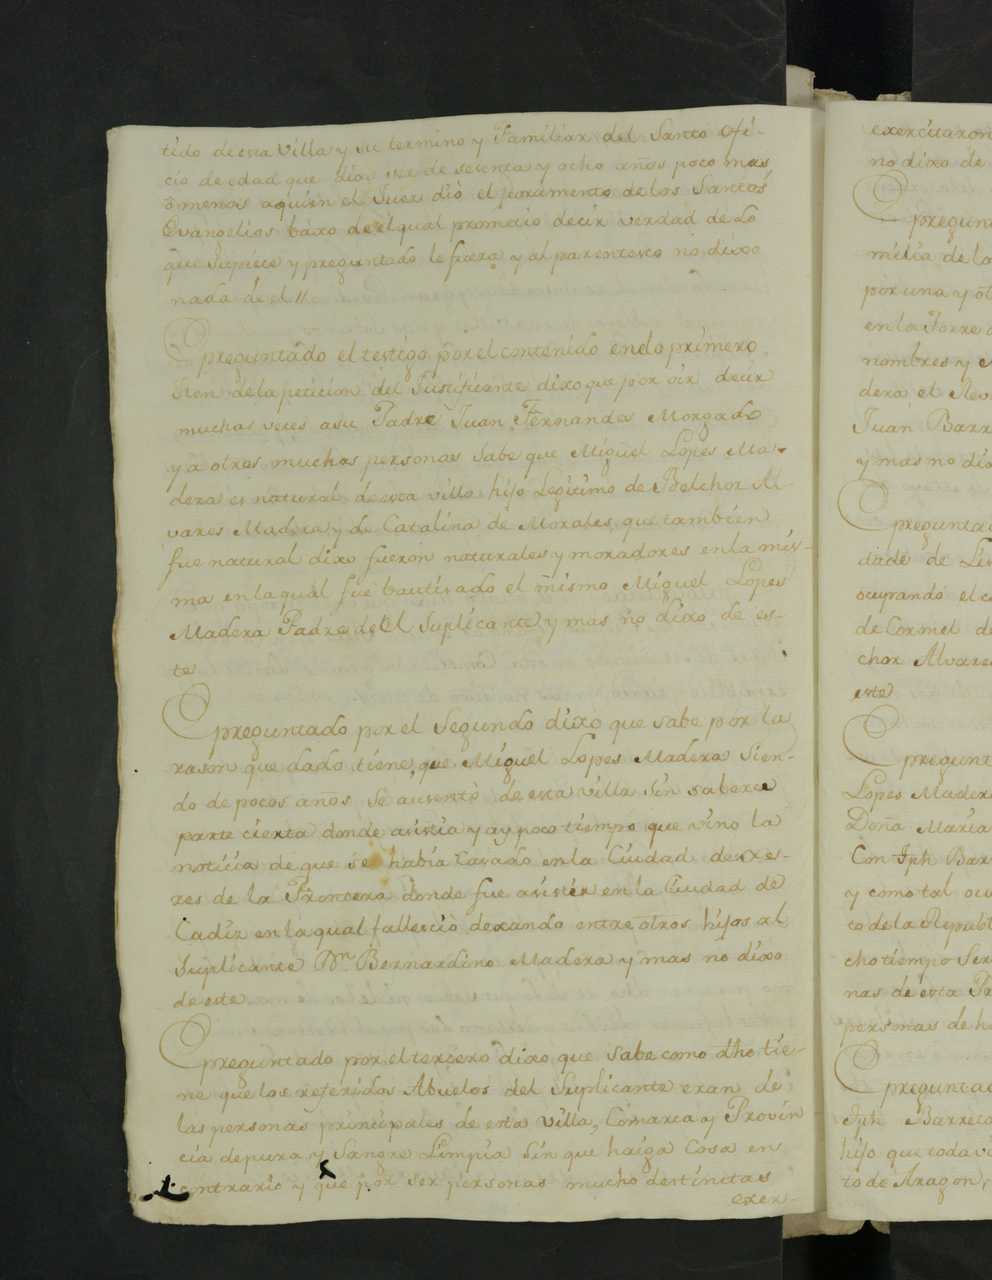 tido de esta Villa y su termino y Familiar del Santo Ofi-
cio de edad que dixo ser de sesenta y ocho años poco mas
ò menos aquien el Juez diò el juramento de los Santos
Evangelios báxo de el qual prometio decir verdad de lo
que supiese y preguntado le fuera y al parentesco no dixo
nada de el //.
E preguntado el testigo por el contenido en lo primero
Iten de la peticion del Justificante dixo que por oir decir
muchas veces asu Padre Juan Fernandes Morgado
y a otras muchas personas sabe que Miguel Lopes Ma-
dera es natural de esta villa hijo Legitimo de Belchor Al
vares Madera y de Catalina de Morales, que tambien
fue natural dixo fueron naturales y moradores en la mis-
ma en la qual fue bautisado el mismo Miguel Lopes
Madera Padre de el Suplicante y mas no dixo de es-
te
E preguntado por el segundo dixo que sabe por la
rason que dado tiene, que Miguel Lopes Madera sien-
do de pocos años se ausentò de esta villa sin saberse
parte cierta donde asistia y ay poco tiempo que vino la
noticia de que se habia Casado en la Ciudad de Xe-
res de la Frontera donde fue asistir en la Ciudad de
Cadiz en la qual falleciò dexando entre otros hijos al
Suplicante Dn. Bernardino Madera y mas no dixo
de este
E preguntado por el tercero dixo que sabe como dho tie-
ne que los referidos Abuelos del Suplicante eran de
las personas principales de esta villa, Comarca y Provin
cia de pura y Sangre Limpia sin que haiga Cosa en
contrario y que por ser personas mucho destinctas
exer-
exercitaron
no dixo de
E pregunt
milia de la
por una y ot
en la Torre d
nombres y
dera el Rev
Juan Barr
y mas no dix
E preguntad
dade de Lin
ocupando el c
de Cormel de
chor Alvares
este
E pregunt
Lopes Mader
Doña Maria
Con Jph Bar
y como tal ocu
to de la Republ
cho tiempo Ser
nas de esta Pr
personas de h
E preguntad
Jph Barreto
hijo que toda vi
to de Aragon,